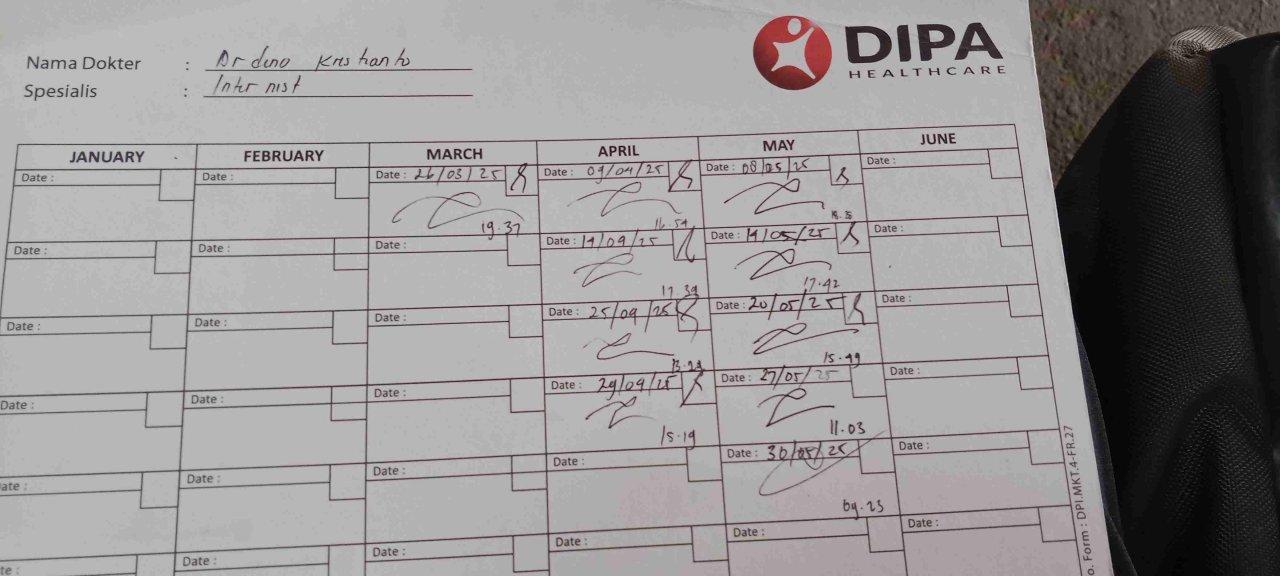 DIPA
HEALTHCARE
Nama Dokter : Dr dino Kristianto
Spesialis : Internist
JANUARY FEBRUARY MARCH APRIL MAY JUNE
Date : Date : Date : 26/03/25 Date : 09/04/25 Date : 08/05/25 Date :
19.37 16.54
Date : Date : Date : Date : 14/04/25 Date : 14/05/25 Date :
17.39 17.42
Date : Date : Date : Date : 25/04/25 Date : 20/05/25 Date :
15.49
Date : Date : Date : Date : 29/04/25 Date : 27/05/25 Date :
15.19 11.03
ate : Date : Date : Date : Date : 30/05/25 Date :
09.23
te : Date : Date : Date : Date : Date :
o. Form : DPI.MKT.4-FR.27